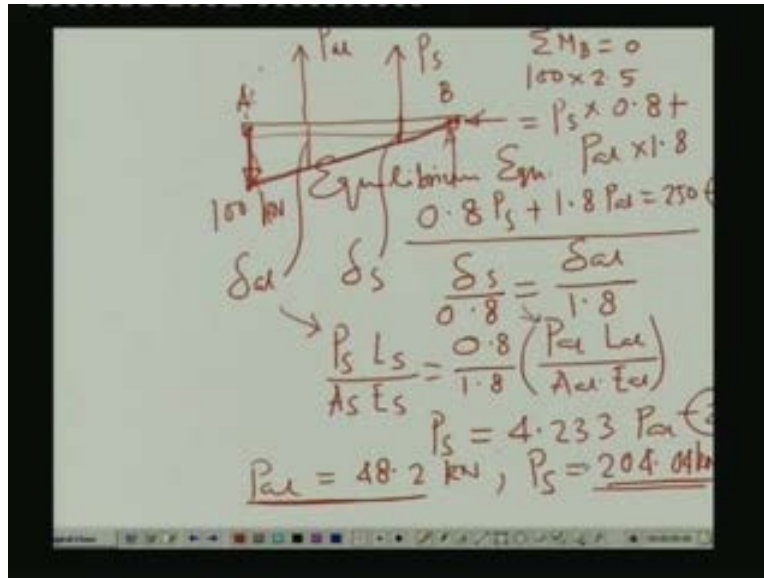 Pal Ps
ΣM_B = 0
100 × 2.5
A B
= Ps × 0.8 +
Pal × 1.8
Equilibrium Eqn.
100 kN
0.8 Ps + 1.8 Pal = 250
δal δs
δs/0.8 = δal/1.8
Ps Ls/As Es = 0.8/1.8 (Pal Lal/Aal Eal)
Ps = 4.233 Pal - 2
Pal = 48.2 kN, Ps = 204.04 kN